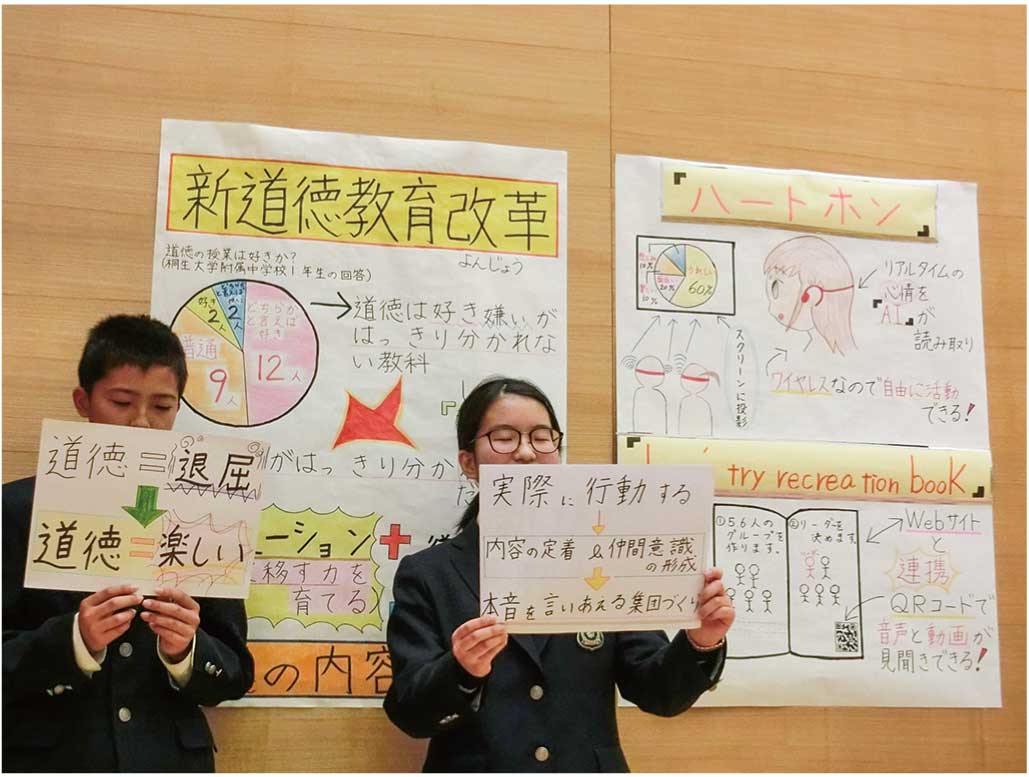 新道徳教育改革
よんじょう
道徳の授業は好きか?
(桐生大学附属中学校1年生の回答)
好き
2人
2人
どちらかと言えば好き
12人
普通
9人
道徳は好き嫌いが
はっきり分かれな
い教科
がはっきり分か
ーション
移す力を
育てる)
の内容
道徳=退屈
道徳=楽しい
実際に行動する
内容の定着&仲間意識
の形成
本音を言いあえる集団づくり
『ハートホン』
うれしい
60%
20%
10%
10%
スクリーンに投影
リアルタイムの
心情を
『AI』が
読み取り
ワイヤレスなので自由に活動
できる!
try recreation book』
①5,6人の
グループを
作ります。
②リーダーを
決めます。
Webサイト
と
連携
QRコードで
音声と動画が
見聞きできる!